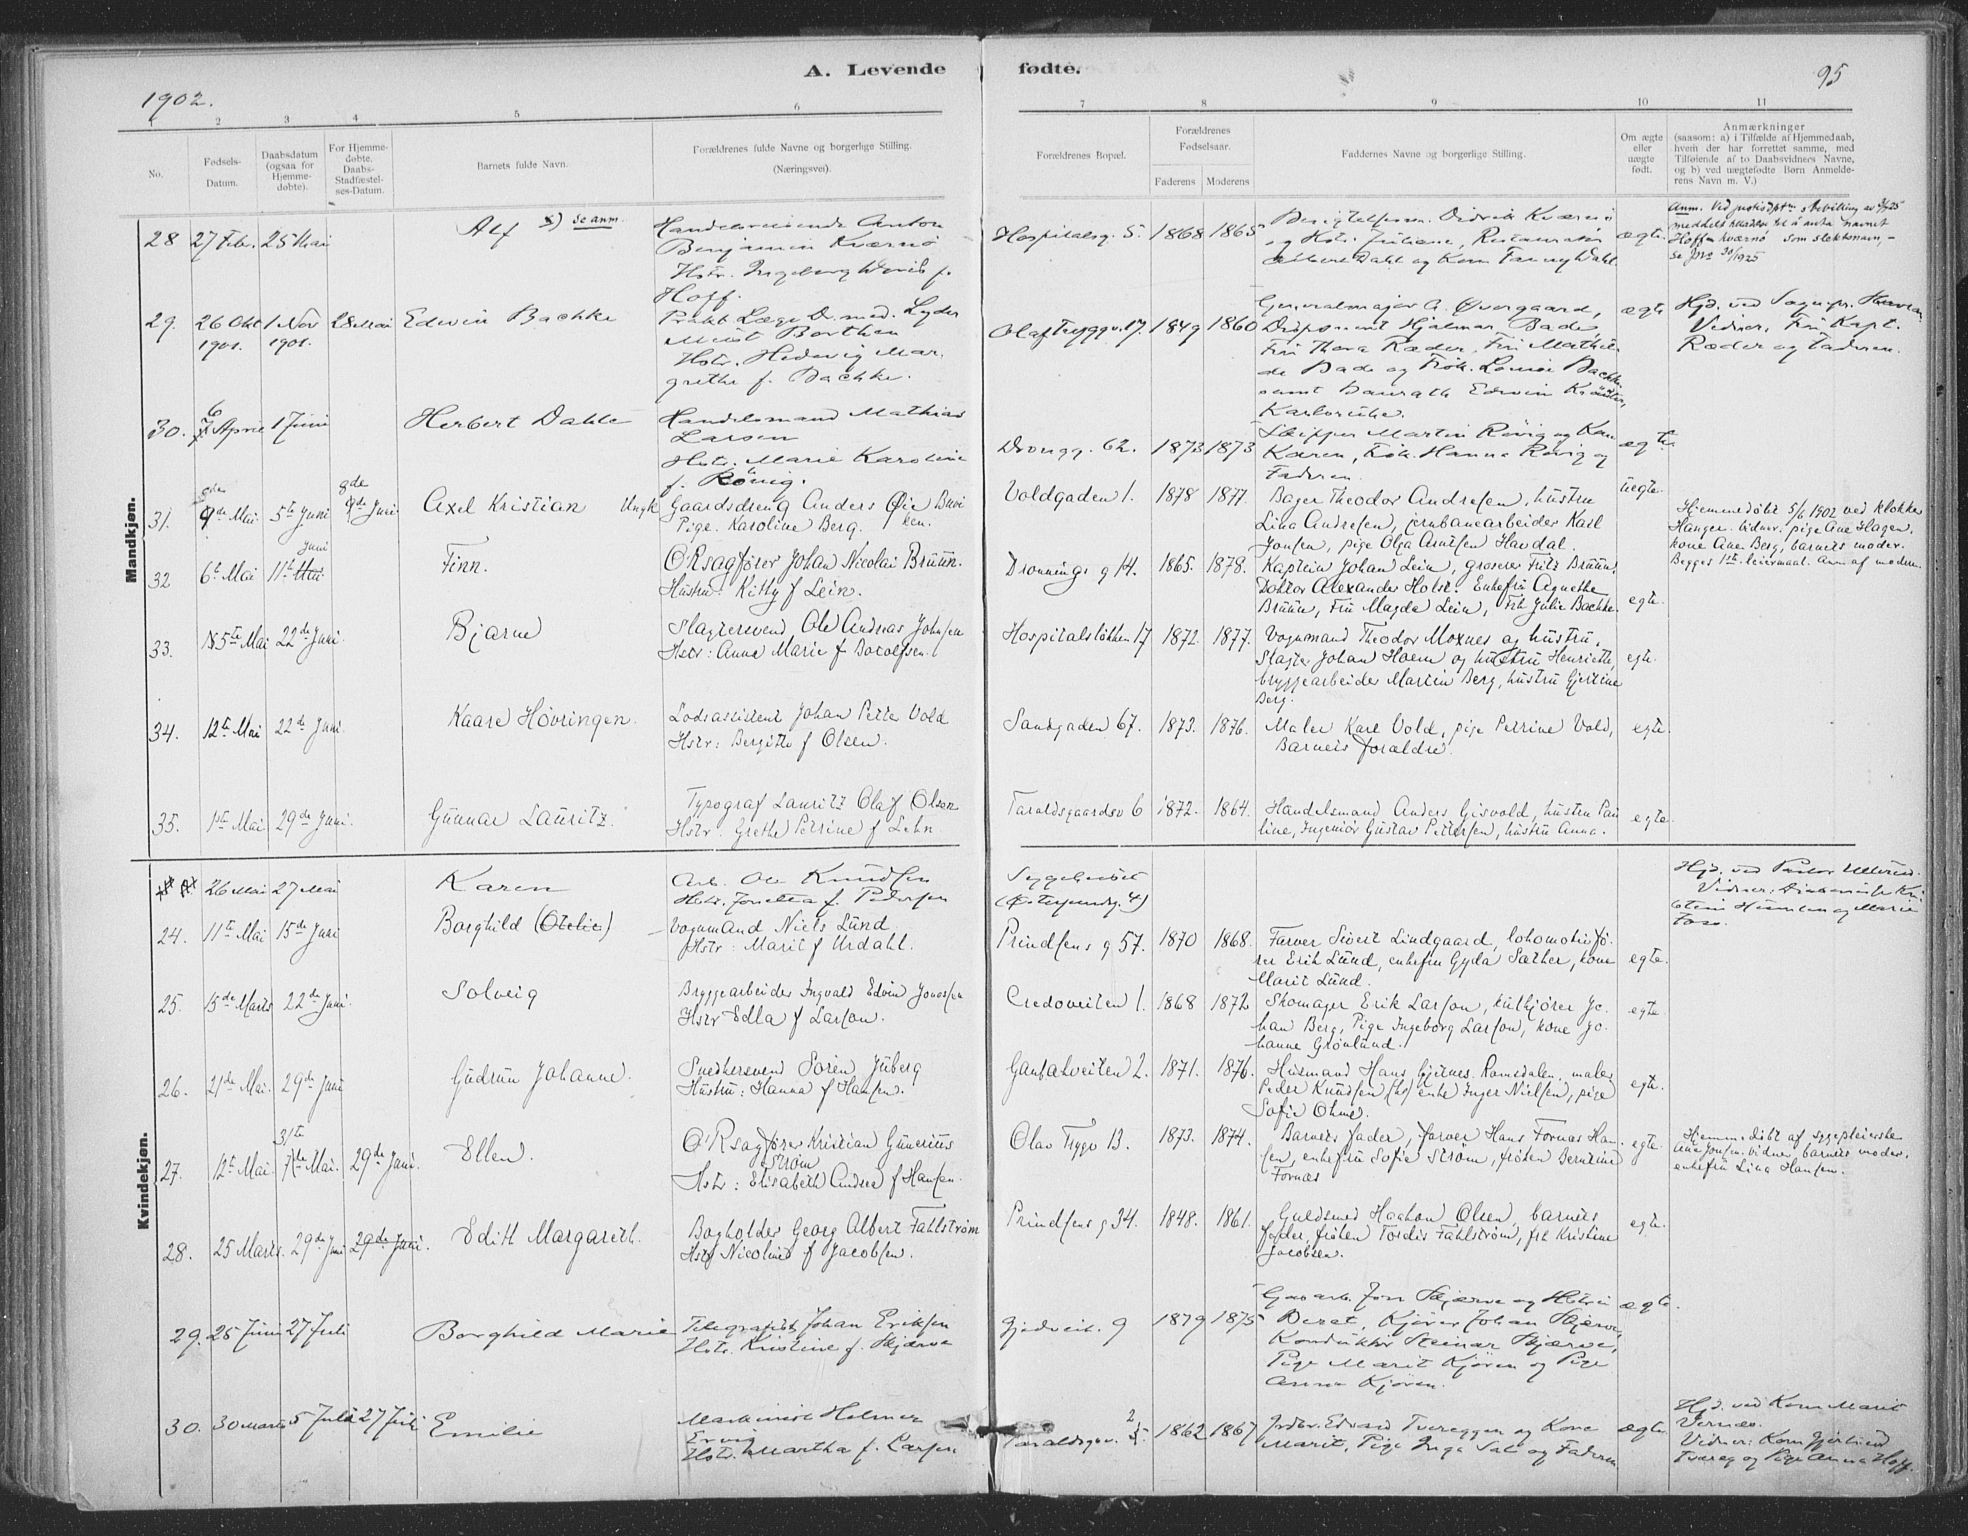 A. Levende fødte.
1902.
95
1 2 3 4 5 6 7 8 9 10 11
No.
Fødsels-
Datum.
Daabsdatum
(ogsaa for
Hjemme-
døbte).
For Hjemme-
døbte.
Daabs-
Stadfæstel-
ses-Datum.
Barnets fulde Navn.
Forældrenes fulde Navne og borgerlige Stilling.
(Næringsvei).
Forældrenes Bopæl.
Forældrenes
Fødselsaar.
Faderens Moderens
Faddernes Navne og borgerlige Stilling.
Om ægte
eller
uægte
født.
Anmærkninger
(saasom: a) i Tilfælde af Hjemmedaab,
hvem der har forrettet samme, med
Tilføiende af to Daabsvidners Navne,
og b) ved uægtefødte Børn Anmelde-
rens Navn m. V.)
Mandkjøn.
28 27 Feb. 25 Mai
Alf x) se anm.
Handelsreisende Anton
Benjamin Kværnø
Hstr. Ingeborg f.
Hoff.
Hospitalsg. 5. 1868 1865
og Hstr. Juliane, Restauratør
Albert Dahl og Kone Fanny Dahl.
ægte.
Anm. Ved justisdptm bevilling av
meddelt til å anta navnet
Hoff-Kværnø som slektsnavn,
se Jno 30/1925
29. 26 Okt 1 Nov 28 Mai
1901. 1901.
Edvin Bachke
Prakt. Læge Dr. med. Lyder
Borthen
Hstr. Hedevig Mar-
grethe f. Bachke.
Olaf Tryggv. 17. 1849 1860
Generalmajor A. Øvergaard,
Hjalmar Bade,
Fru Thora Ræder, Fru Mathil-
de Bade og Frøk. Louise Bachke
samt Baurath Edwin
Karlsruhe.
ægte
Hjd. ved Sognepr.
Vidner, Fru Kapt.
Ræder og Faderen.
30. 6 April 1 Juni
Herbert Dahle
Handelsmand Mathias
Larsen
Hstr. Marie Karoline
f. Røvig.
Dronngg. 62. 1873 1873
Skipper Martin Røvig og Kone
Karen, Frøk. Hanna Røvig og
Faderen.
ægte.
31. 9de Mai 5te Juni 8de Juni
Axel Kristian Ungk
Gaardsdreng Anders Øie
Pige. Karoline Berg.
Voldgaden 1. 1878 1877.
Bager Theodor Andresen, hustru
Lina Andresen, jernbanearbeider Karl
Jonsen, pige Olga Arntsen Havdal.
uegte.
Hjemmedøbt 5/6 1902 ved klokker
Hanger. Vidner. pige Ane Hagen,
kone Ane Berg, barnets moder.
Begges 1ste leiermaal. Anm. af moderen.
32 6te Mai 11te Juni
Finn.
O'Rsagfører Johan Nicolai Bruun.
Hustru: Kitty f Lein.
Dronnings g 14. 1865. 1878.
Kaptein Johan Lein, grosserer Fritz Bruun,
Doktor Alexander Holst. Enkefru Agnethe
Bruun, Fru Magda Lein, Frk Julie Bachke.
egte.
33. 5te Mai 22de Juni
Bjarne
Slagtersvend Ole Andreas Johnsen
Hstr: Anna Marie f Botolfsen.
Hospitalsløkken 17 1872. 1877.
Vognmand Theodor Moxnes og hustru,
Slagter Johan Hoem og hustru Henriette,
bryggearbeider Martin Berg, hustru Gjertine
Berg.
egte.
34. 12te Mai 22de Juni
Kaare Høvringen.
Lodsassistent Johan Petter Vold
Hstr: Bergitte f Olsen.
Sandgaden 67. 1873. 1876.
Maler Karl Vold, pige Petrine Vold,
Barnets forældre.
egte.
35. 1ste Mai 29de Juni.
Gunnar Lauritz.
Typograf Lauritz Olaf Olsen
Hstr. Grethe Petrine f Lehn.
Taraldsgaardsv 6 1872. 1864.
Handelsmand Anders Gisvold, hustru Pau
line, Ingeniør Gustav Pettersen, hustru Anna.
egte.
Kvindekjøn.
26 Mai 27 Mai
Karen
Arb. Ole Knudsen
Hstr. Jonetta f. Pedersen
Sygehuset
Hjd. ved Pastor
Vidner: Diakonisse Kri
stine og Marie
Foss.
24. 11te Mai 15de Juni
Borghild (Otelie)
Vognmand Niels Lund
Hstr: Marit f Urdahl.
Prindsens g 57. 1870 1868.
Farver Sivert Lindgaard, lokomotivfø-
rer Erik Lund, enkefru Gyda Sæther, kone
Marit Lund.
egte.
25. 15de Marts 22de Juni.
Solveig
Bryggearbeider Ingvald Edvin Jonassen
Hstr Edla f Larsen.
Credoveiten 1. 1868 1872
Skomager Erik Larsen, kulkjører Jo-
han Berg, Pige Ingeborg Larsen, kone Jo-
hanne Grønlund.
egte.
26. 21de Mai. 29de Juni
Gudrun Johanne.
Snedkersvend Søren Juberg
Hustru: Hanna f Hansen.
Ganbakveiten 2. 1871. 1876.
Husmand Hans Gjetnes. Romsdalen, maler
Peder Knudsen (hs) enke Inger Nielsen, pige
Sofie Ohme.
egte.
27. 12te Mai 31te Mai. 29de Juni.
Ellen.
O'Rsagfører Kristian Gunerius
Strøm
Hstr: Elisabeth Andrea f Hansen.
Olav Trygv 13. 1873. 1874.
Barnets fader, farver Hans Fornæs Han-
sen, enkefru Sofie Strøm, frøken Berntine
Fornæs
egte.
Hjemmedøbt af sygepleierske
Ane Jonsen. Vidner barnets moder,
enkefru Lina Hansen.
28. 25 Marts. 29de Juni 29de Juni.
Edith Margareth.
Bogholder Georg Albert Fahlstrøm
Hstr Nicoline f Jacobsen.
Prindsens g 34. 1848. 1861.
Guldsmed Haakon Olsen, barnets
fader, frøken Tordis Fahlstrøm, frk Kristine
Jacobsen.
egte.
29. 25 Juni 27 Juli
Borghild Marie
Telegrafist Johan Eriksen
Hstr. Kristine f. Skjærve
Gjedveit. 9 1879 1875
Gaardarb. Jon Skjærve og Hstru
Beret, Kjører Johan Skjærve,
Konduktør Steinar Skjærve,
Pige Marit Kjøren og Pige
Anna Kjøren.
ægte.
30. 30 Marts 5 Juli 27 Juli
Emilie
Maskinist Helmer
Ervig
Hstr. Martha f. Larsen
Taraldsgv. 2 1862 1867
Jrdbr. Edvard Tvereggen og Kone
Marit, Pige Inga Sal og Faderen
ægte.
Hjd. ved Kone Marit
Vernæs.
Vidner: Kone Gjertrud
Tvereg og Pige Anna Hoff.